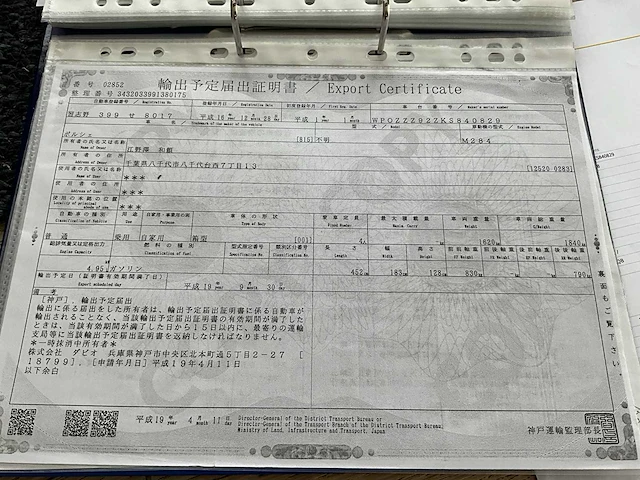 番号 02852
輸出予定届出証明書 / Export Certificate
整理番号 343203991380175
自動車登録番号 / Registration No. 登録年月日 / Registration Date 初度登録年月 / First Reg. Date 車台番号 / Maker's serial number
習志野 399 せ 8017 平成16年 12月 28日 平成 1年 1月 WP0ZZZ92ZKS840829
車名 / Trademark of the maker of the vehicle 型式 / Model 原動機の型式 / Engine Model
ポルシェ [815] 不明 M284
所有者の氏名又は名称 Name of Owner
所有者の住所 Address of Owner 千葉県八千代市八千代台西7丁目13 [12520 0283]
使用者の氏名又は名称 Name of User ***
使用者の住所 Address of User ***
使用の本拠の位置 Locality of principal abode of use ***
自動車の種別 Classification of Vehicle 用途 Use 自家用・事業用の別 Purpose 車体の形状 Type of Body 乗車定員 Fixed Number 最大積載量 Maxim. Carry 車両重量 Weight 車両総重量 G/Weight
普通 乗用 自家用 箱型 [001] 4人 1620kg 1840kg
総排気量又は定格出力 Engine Capacity 燃料の種別 Classification of Fuel 型式指定番号 Specification No. 類別区分番号 Classification No. 長さ Length 幅 Width 高さ Height 前前軸重 FF Weight 前後軸重 FR Weight 後前軸重 RF Weight 後後軸重 RR Weight
4.95 ガソリン 452cm 183cm 128cm 830kg 790kg
輸出予定日(証明書有効期間満了日) Export scheduled day 平成19年 9月 30日
備考
[神戸], 輸出予定届出
輸出に係る届出をした所有者は、輸出予定届出証明書に係る自動車が
輸出されることなく、当該輸出予定届出証明書の有効期間が満了した
ときは、当該有効期間が満了した日から15日以内に、最寄りの運輸
支局等に当該輸出予定届出証明書を返納しなければなりません。
*一時抹消中所有者*
株式会社 ダビオ 兵庫県神戸市中央区北本町通5丁目2-27 [
18799]. [申請年月日] 平成19年4月11日
以下余白
裏面もご覧下さい。
平成19年 year 4月 month 11日 day
Director-General of the District Transport Bureau or
Director-General of the Transport Branch of the District Transport Bureau,
Ministry of Land, Infrastructure and Transport, Japan
神戸運輸監理部長